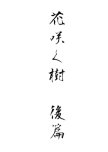 花咲く樹　後篇